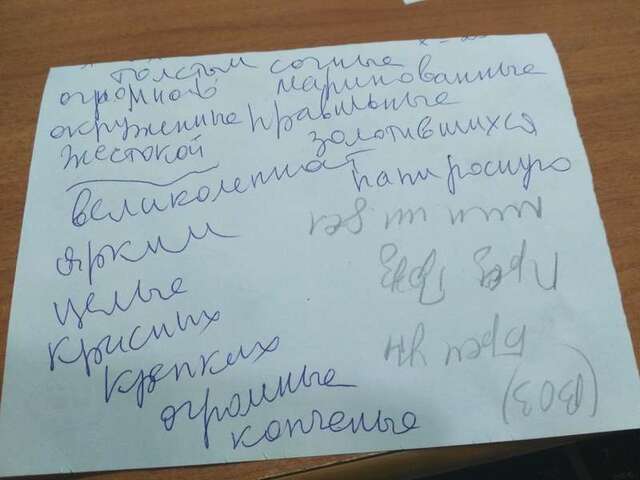 толстым сочные
огромного маринованные
окруженные правильные
жестокой золотившихся
великолепная папиросную
ярким
целые
крисных
крепких
огромные
копченые
(ВОЗ)